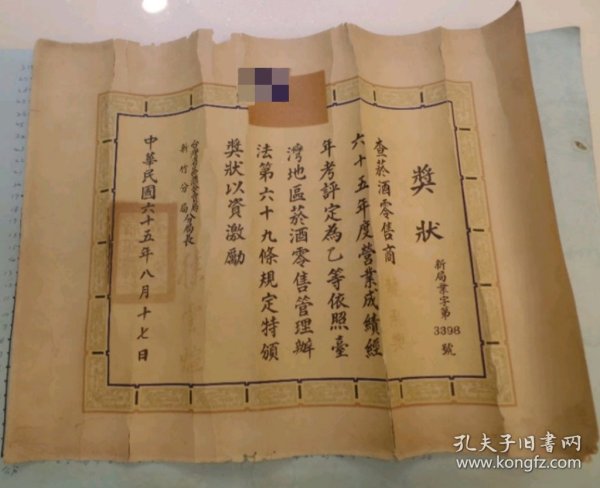 獎狀
新局業字第3398號
查菸酒零售商
六十五年度營業成績經
年考評定為乙等依照臺
灣地區菸酒零售管理辦
法第六十九條規定特頒
獎狀以資激勵
新竹分局
分局長
中華民國六十五年八月十七日
孔夫子旧书网
www.kongfz.com